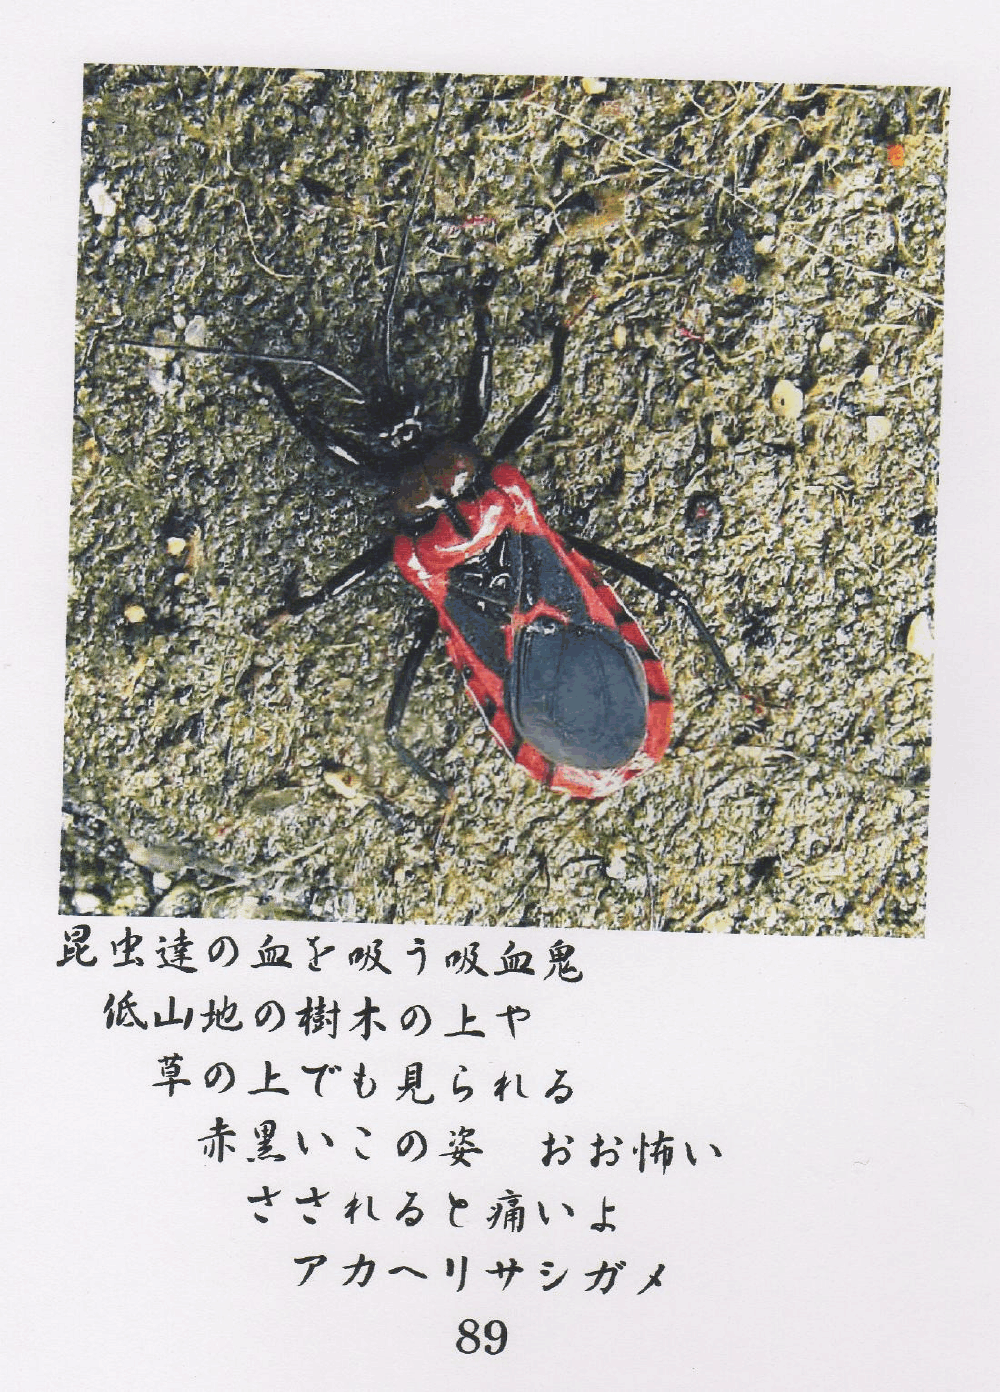 昆虫達の血を吸う吸血鬼
低山地の樹木の上や
草の上でも見られる
赤黒いこの姿　おお怖い
さされると痛いよ
アカヘリサシガメ
89